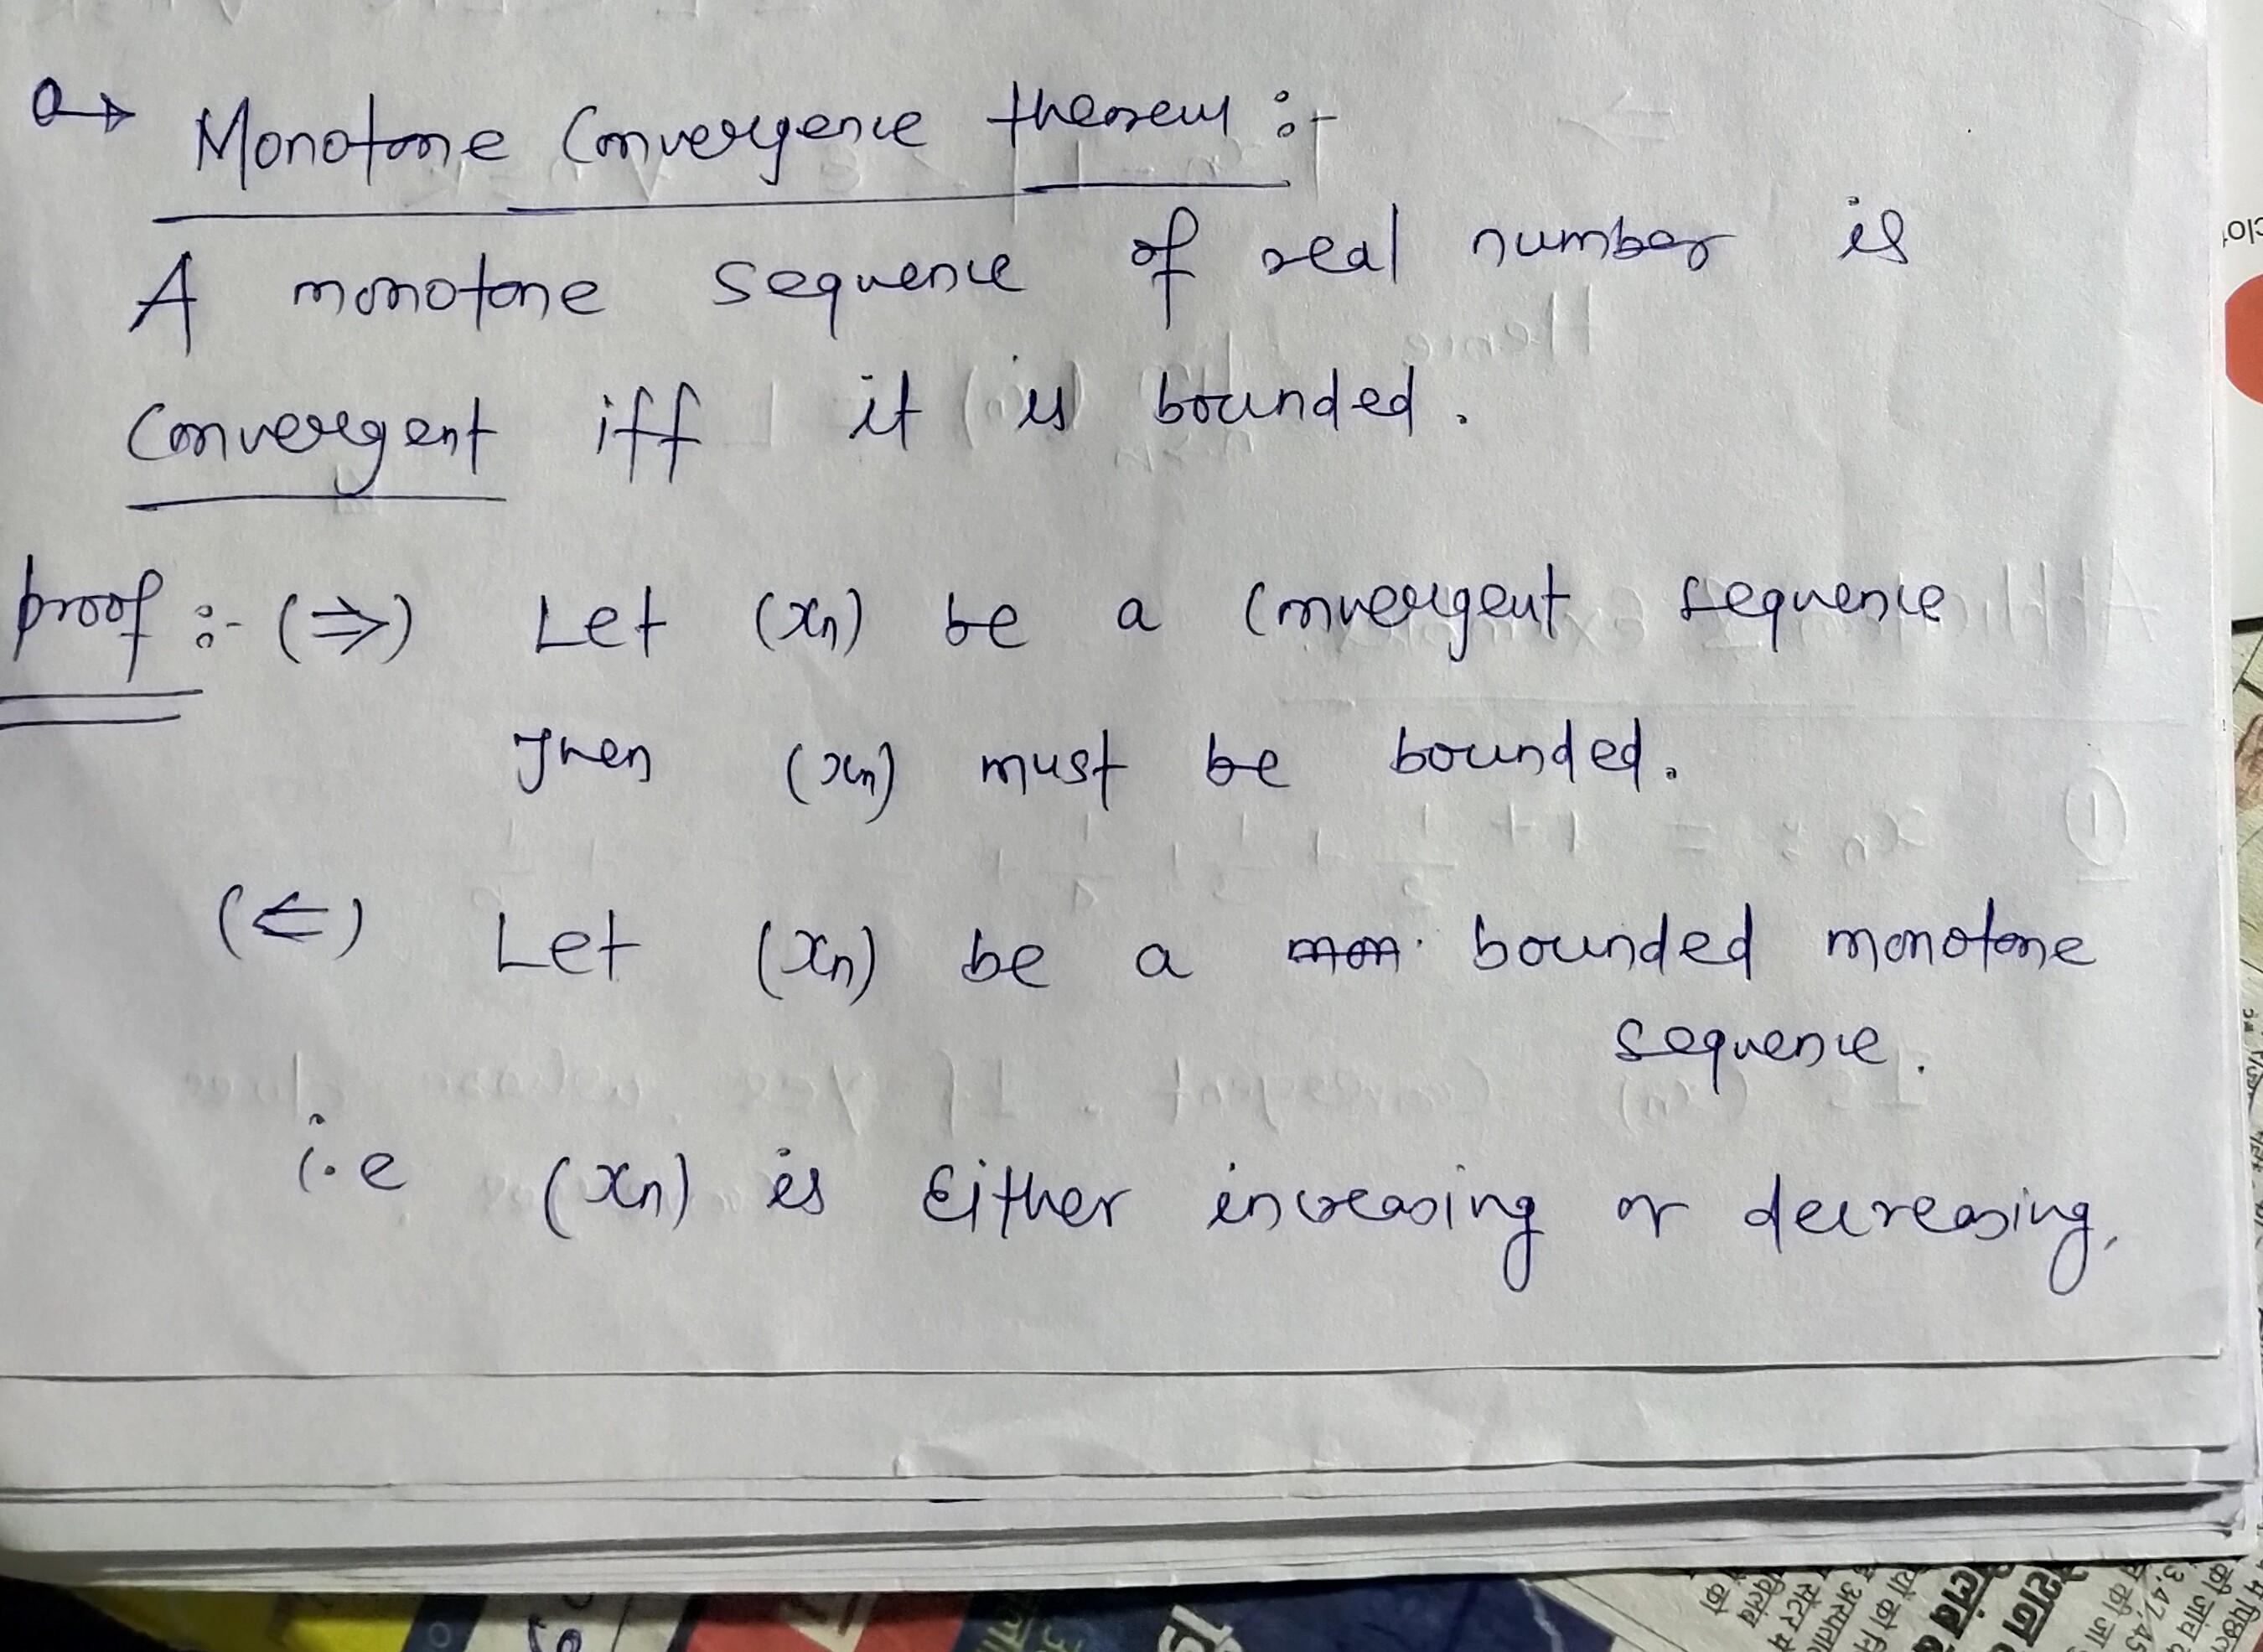 Monotone Convergence theorem :-
A monotone sequence of real number is
Convergent iff it is bounded.
proof :- (⇒) Let (xn) be a Convergent sequence
Then (xn) must be bounded.
(⇐) Let (xn) be a mon. bounded monotone
sequence.
i.e (xn) is Either increasing or decreasing,